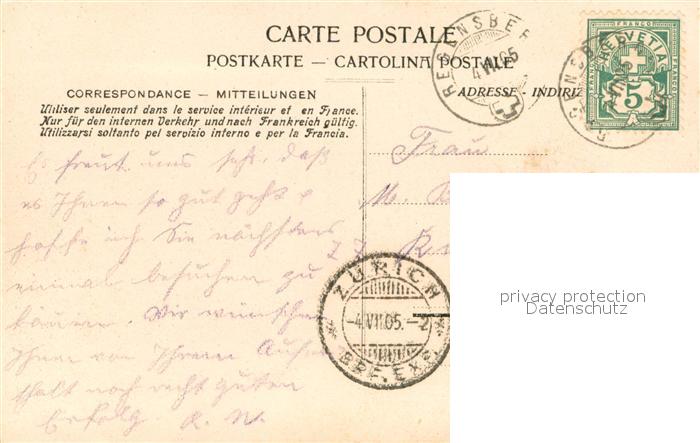 CARTE POSTALE
POSTKARTE — CARTOLINA POSTALE
CORRESPONDANCE — MITTEILUNGEN
Utiliser seulement dans le service intérieur et en France.
Nur für den internen Verkehr und nach Frankreich gültig.
Utilizzarsi soltanto pel servizio interno e per la Francia.
ADRESSE - INDIRIZ
REGENSBE
4 VII 05
FRANCO
HELVETIA
5
Es freut uns sehr, daß
es Ihnen so gut geht &
hoffe ich Sie nächstens
einmal besuchen zu
können. Wir wünschen
Ihnen von Ihrem Aufent
halt noch recht guten
Erfolg. R. W.
Frau
M.
ZÜRICH
-4.VII.05.-2
BRF. EXP.
privacy protection
Datenschutz